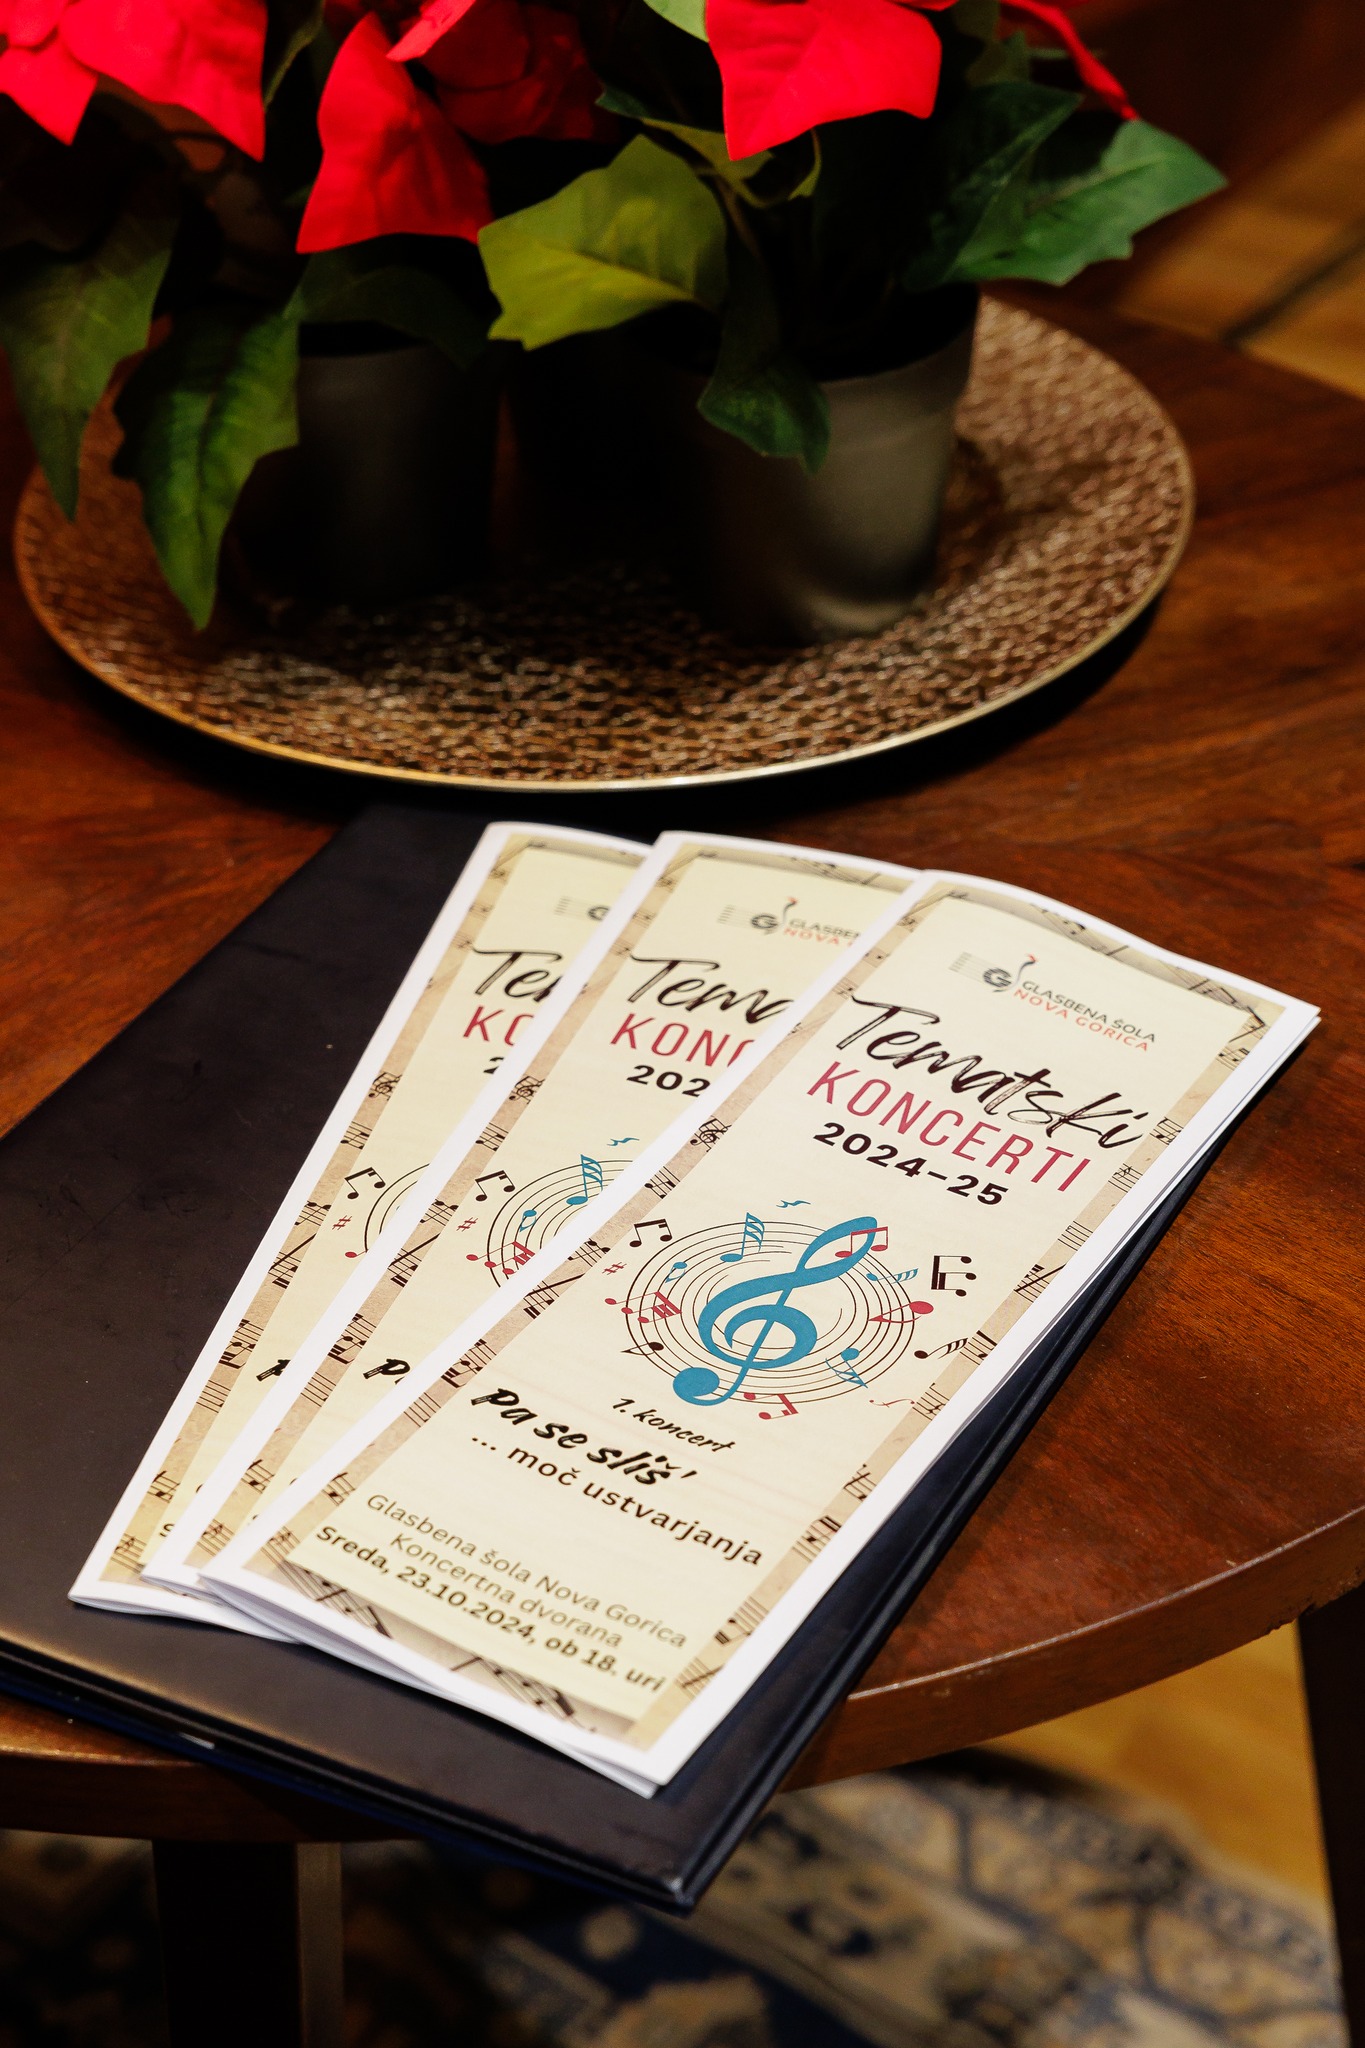 GLASBENA ŠOLA
NOVA GORICA
Tematski
KONCERTI
2024-25
1. koncert
pa se sliš'
... moč ustvarjanja
Glasbena šola Nova Gorica
Koncertna dvorana
Sreda, 23.10.2024, ob 18. uri
GLASBEN
NOVA
Tema
KONC
202
Te
KO
2